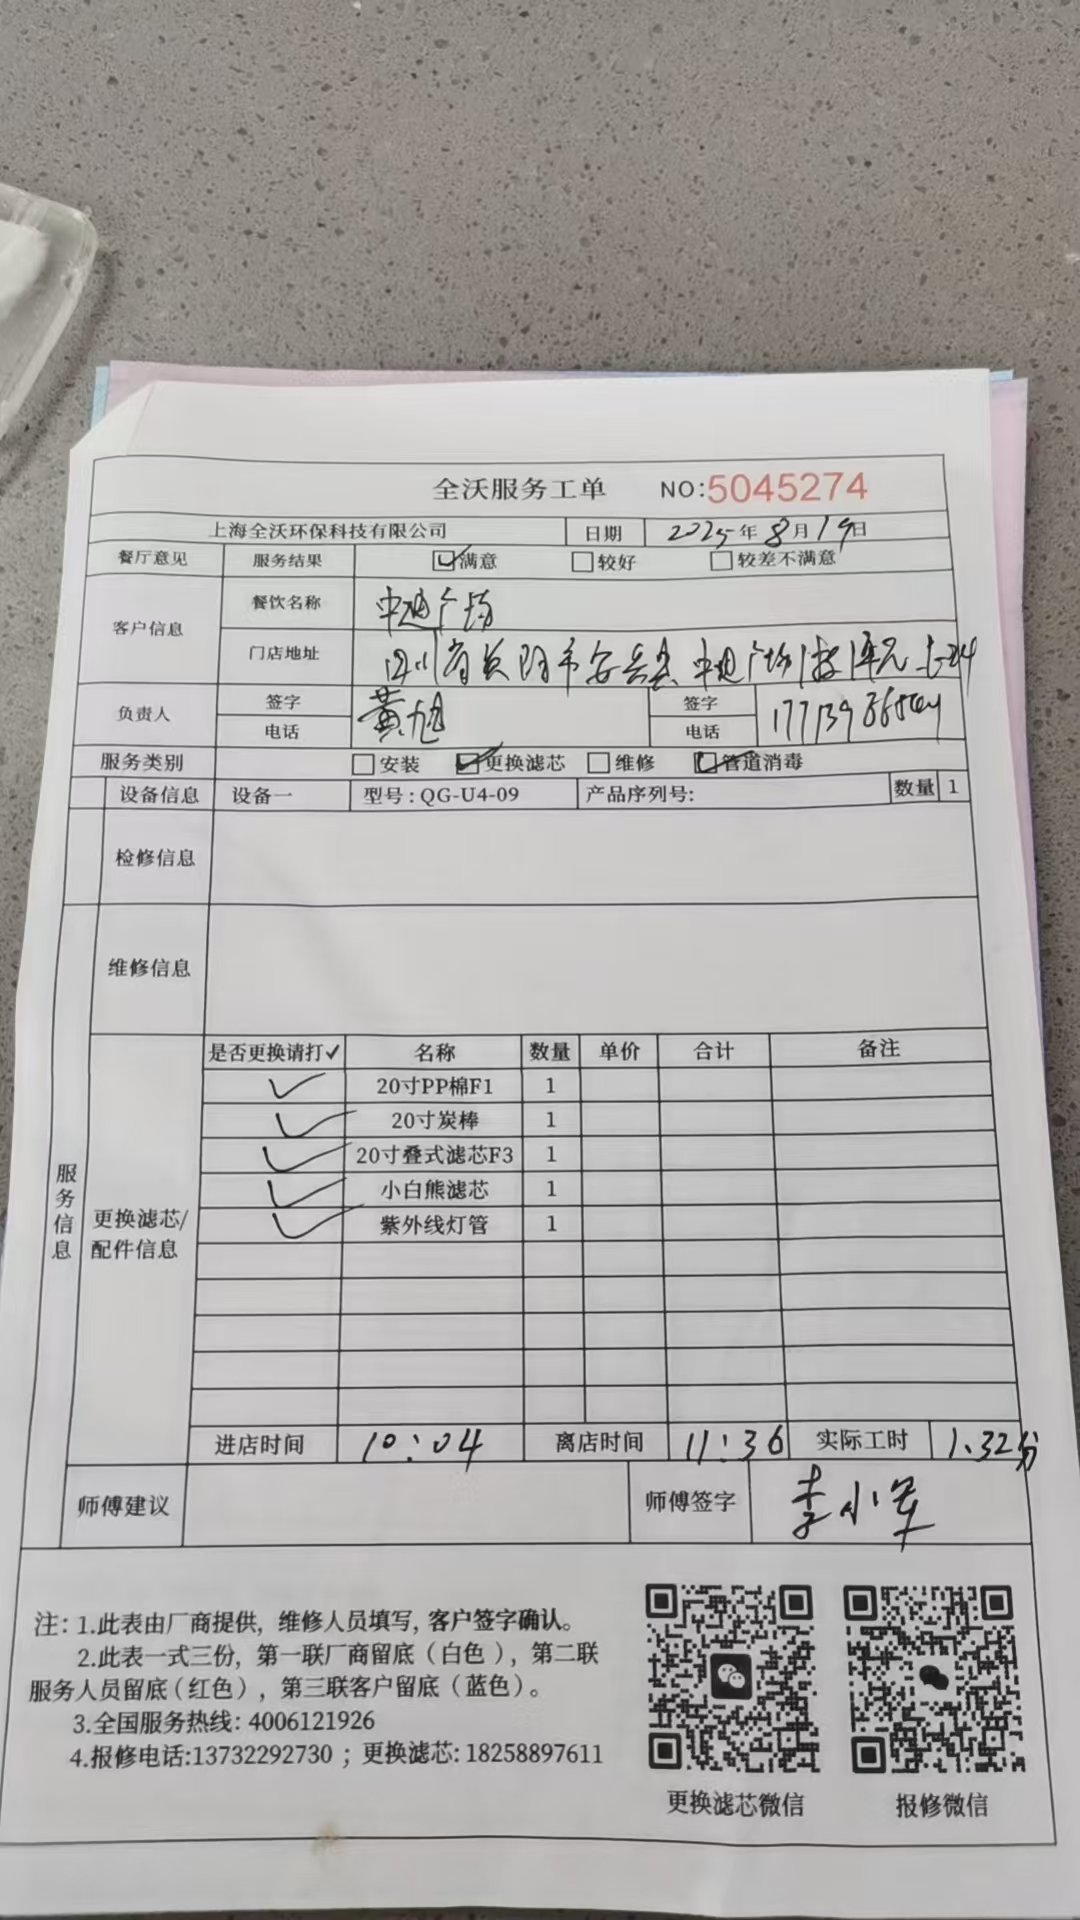 全沃服务工单 NO:5045274
上海全沃环保科技有限公司 日期 2025年8月19日
餐厅意见 服务结果 ☑满意 □较好 □较差不满意
客户信息 餐饮名称 中迪广场
门店地址 四川省资阳市安岳县中迪广场1楼1单元
负责人 签字 黄旭 签字
电话 电话
服务类别 □安装 ☑更换滤芯 □维修 ☑管道消毒
设备信息 设备一 型号:QG-U4-09 产品序列号: 数量 1
检修信息
维修信息
服务信息
更换滤芯/配件信息
是否更换请打✓ 名称 数量 单价 合计 备注
✓ 20寸PP棉F1 1
✓ 20寸炭棒 1
✓ 20寸叠式滤芯F3 1
✓ 小白熊滤芯 1
✓ 紫外线灯管 1
进店时间 10:04 离店时间 11:36 实际工时 1.32分
师傅建议 师傅签字 李小军
注: 1.此表由厂商提供, 维修人员填写, 客户签字确认。
2.此表一式三份, 第一联厂商留底(白色), 第二联
服务人员留底(红色), 第三联客户留底(蓝色)。
3.全国服务热线: 4006121926
4.报修电话:13732292730 ; 更换滤芯: 18258897611
更换滤芯微信 报修微信